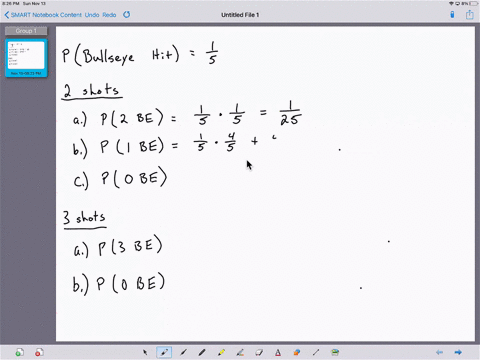 8:26 PM Sun Nov 13
8%
SMART Notebook Content Undo Redo
Untitled File 1
Group 1
1
P(Bullseye Hit) = 1/5
2 shots
a.) P(2 BE) = 1/5 · 1/5 = 1/25
b.) P(1 BE) = 1/5 · 4/5 +
c.) P(0 BE)
3 shots
a.) P(3 BE)
b.) P(0 BE)